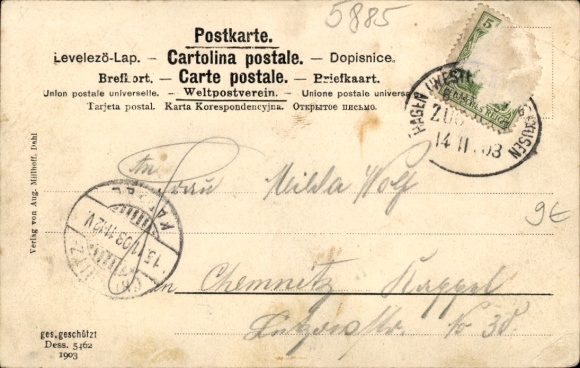 5885
Postkarte.
Levelezö-Lap. — Cartolina postale. — Dopisnice.
Brefkort. — Carte postale. — Briefkaart.
Union postale universelle. — Weltpostverein. — Unione postale universa
Tarjeta postal. Karta Korespondencyjna. Открытое письмо.
5
HAGEN (WESTF
HAUSEN
ZUG
14 11 03
An Frau Milda Wolf
9€
KAPPEL
15.11.03.11-12V
in Chemnitz Kappel
No 30.
Verlag von Aug. Müllhoff, Dahl
ges.geschützt
Dess. 5462
1903